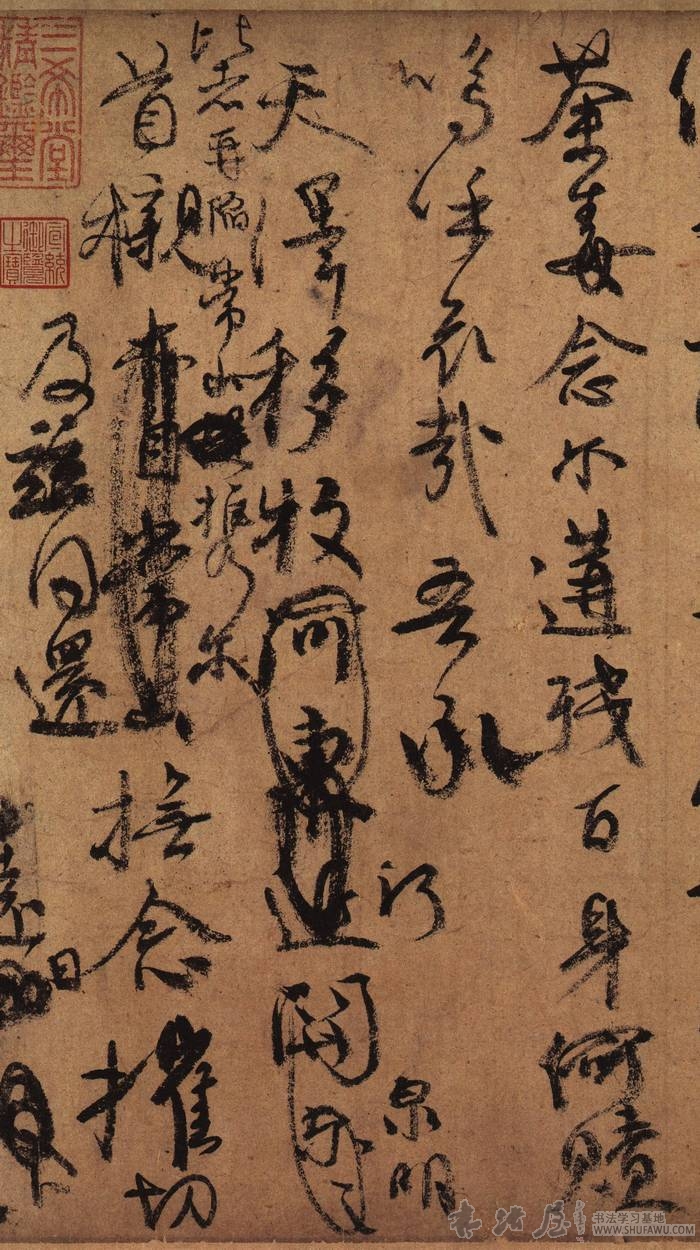 荼毒念尔遘殘百身何贖
嗚呼哀哉吾承
天澤移牧河東近
河關
泉明
比者再陷常山携尔
首櫬
常山
撫念摧切
及兹同還
遠日
三希堂精鑑璽
宣統御覽之寶
书法屋
书法学习基地
WWW.SHUFAWU.COM